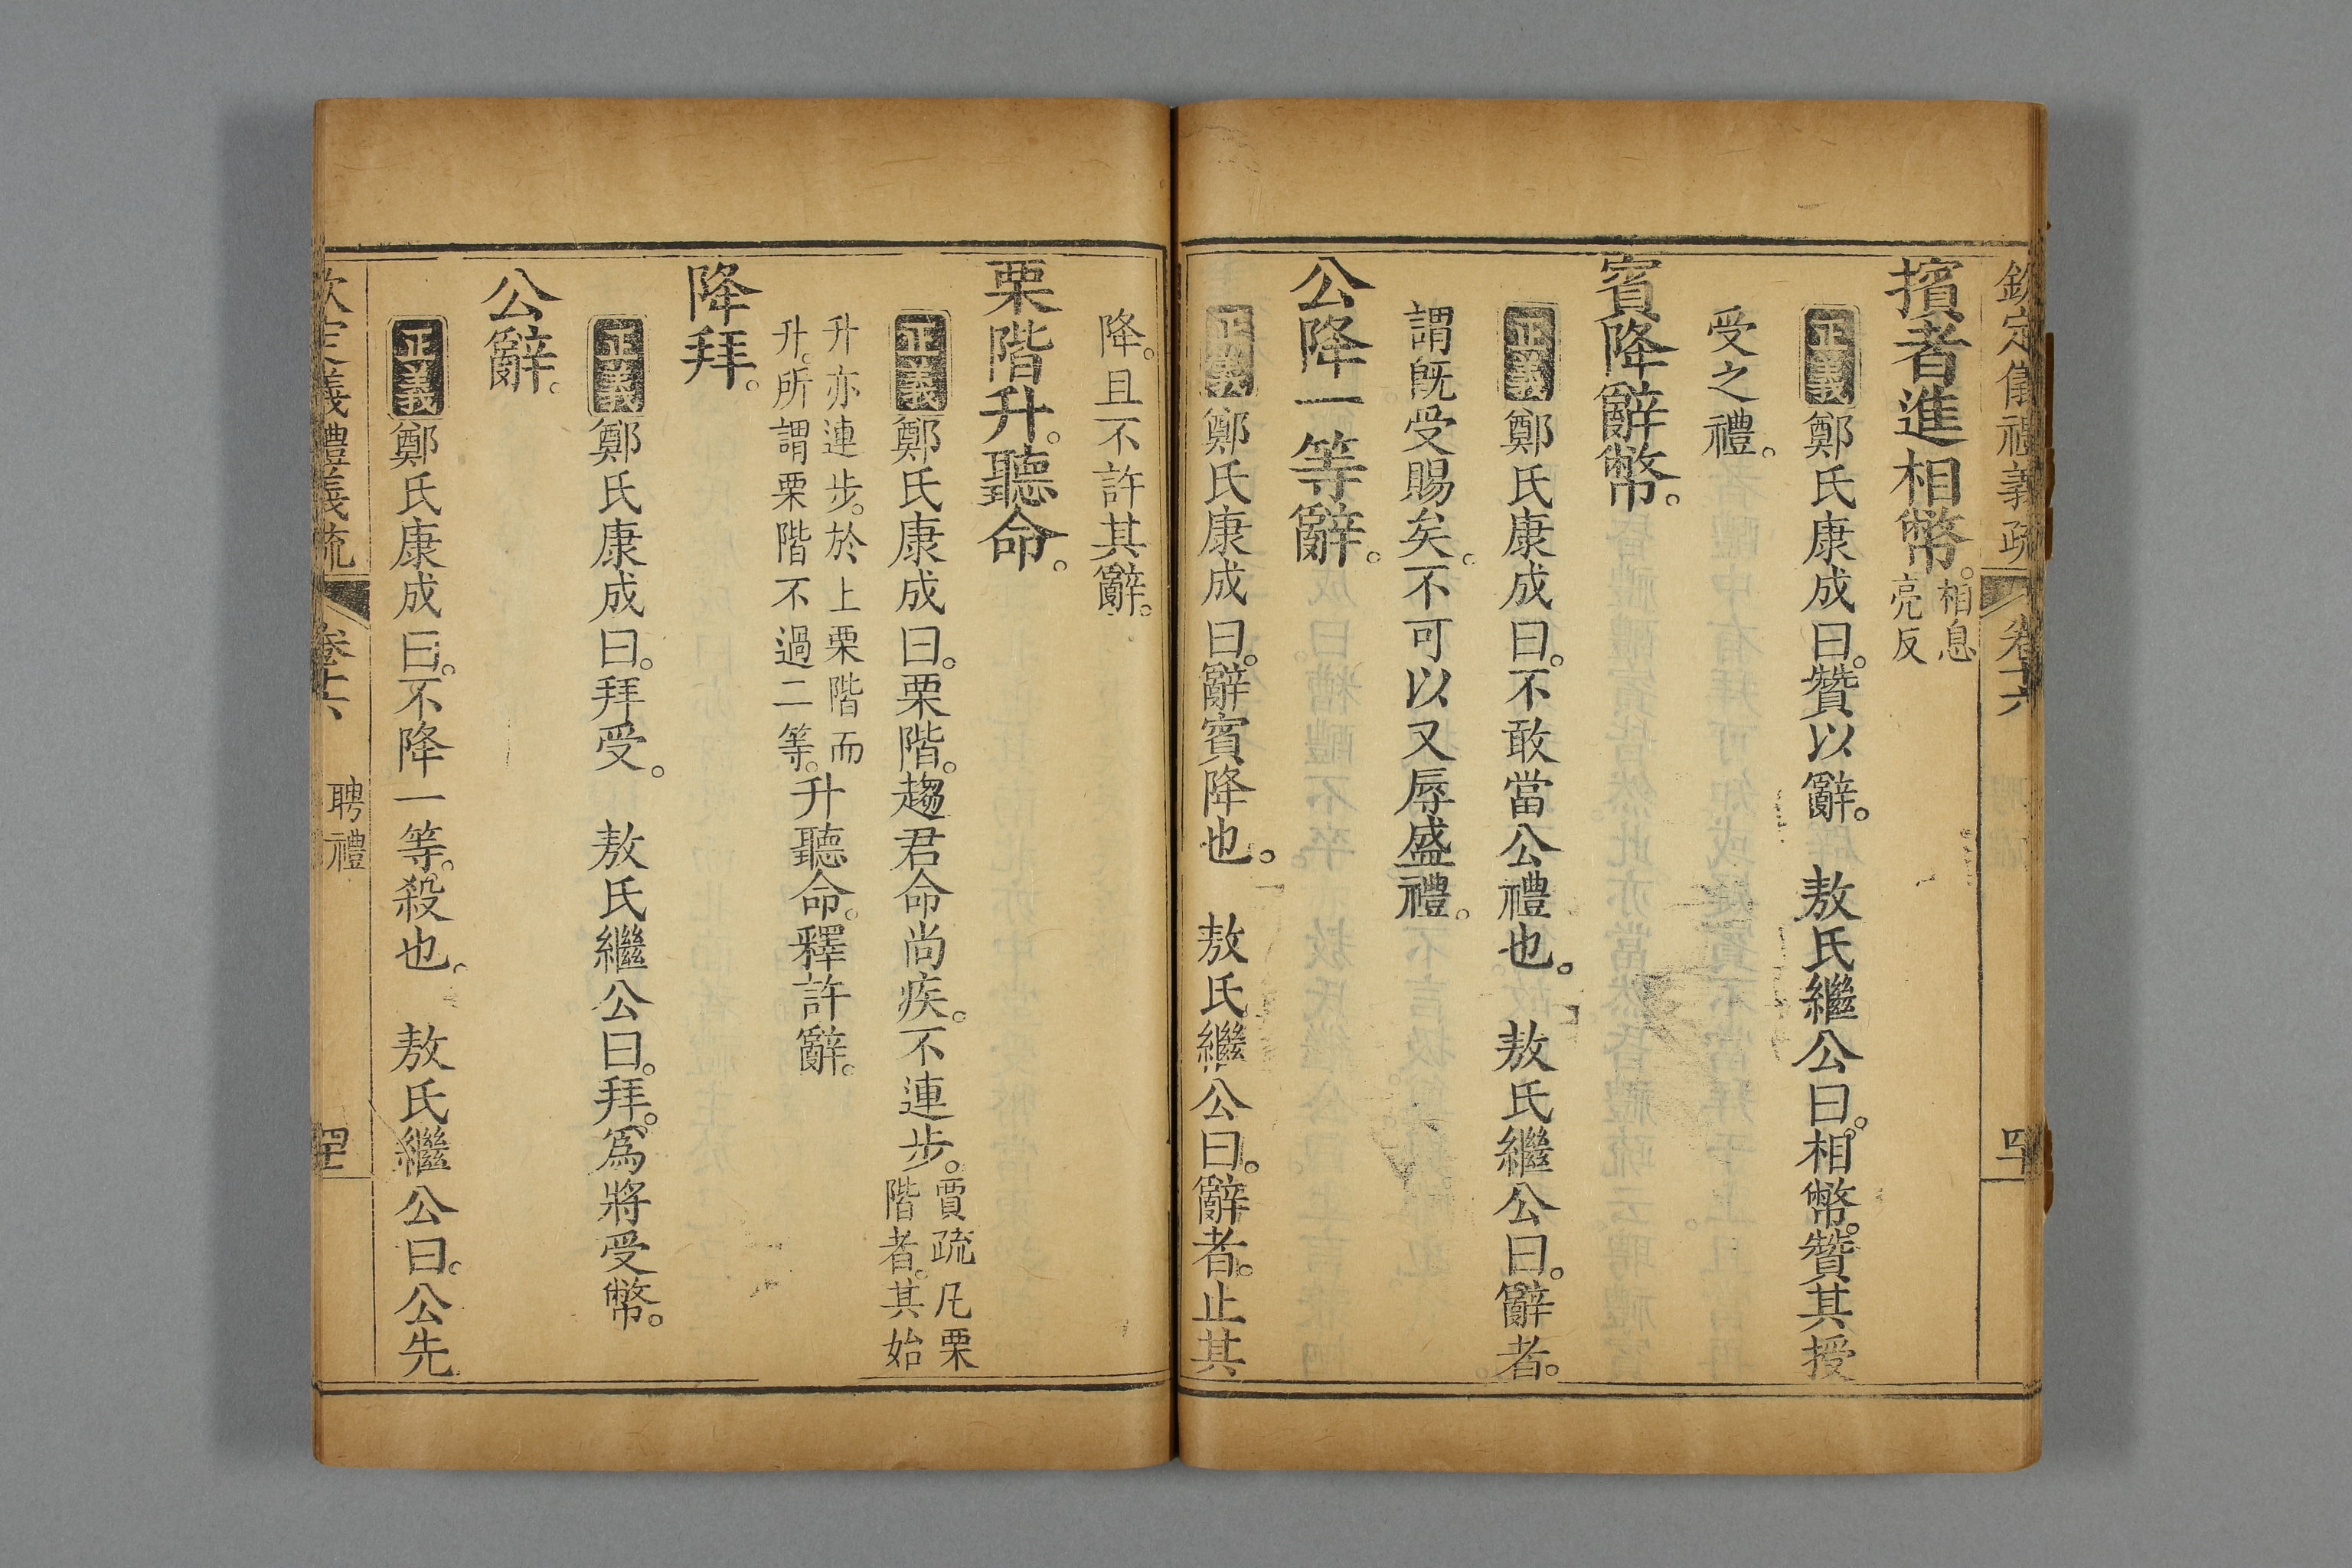 欽定儀禮義疏 卷十六
擯者進相幣。相息亮反
正義鄭氏康成曰。贊以辭。 敖氏繼公曰。相幣。贊其授
受之禮。
賓降辭幣。
正義鄭氏康成曰。不敢當公禮也。 敖氏繼公曰。辭者。
謂旣受賜矣。不可以又辱盛禮。
公降一等辭。
正義鄭氏康成曰。辭賓降也。 敖氏繼公曰。辭者。止其
降。且不許其辭。
栗階升。聽命。
正義鄭氏康成曰。栗階。趨君命尚疾。不連步。賈疏凡栗階者。其始
升亦連步。於上栗階而升。所謂栗階不過二等。升聽命。釋許辭。
降拜。
正義鄭氏康成曰。拜受。 敖氏繼公曰。拜。爲將受幣。
公辭。
正義鄭氏康成曰。不降一等。殺也。 敖氏繼公曰。公先
欽定儀禮義疏 卷十六 聘禮